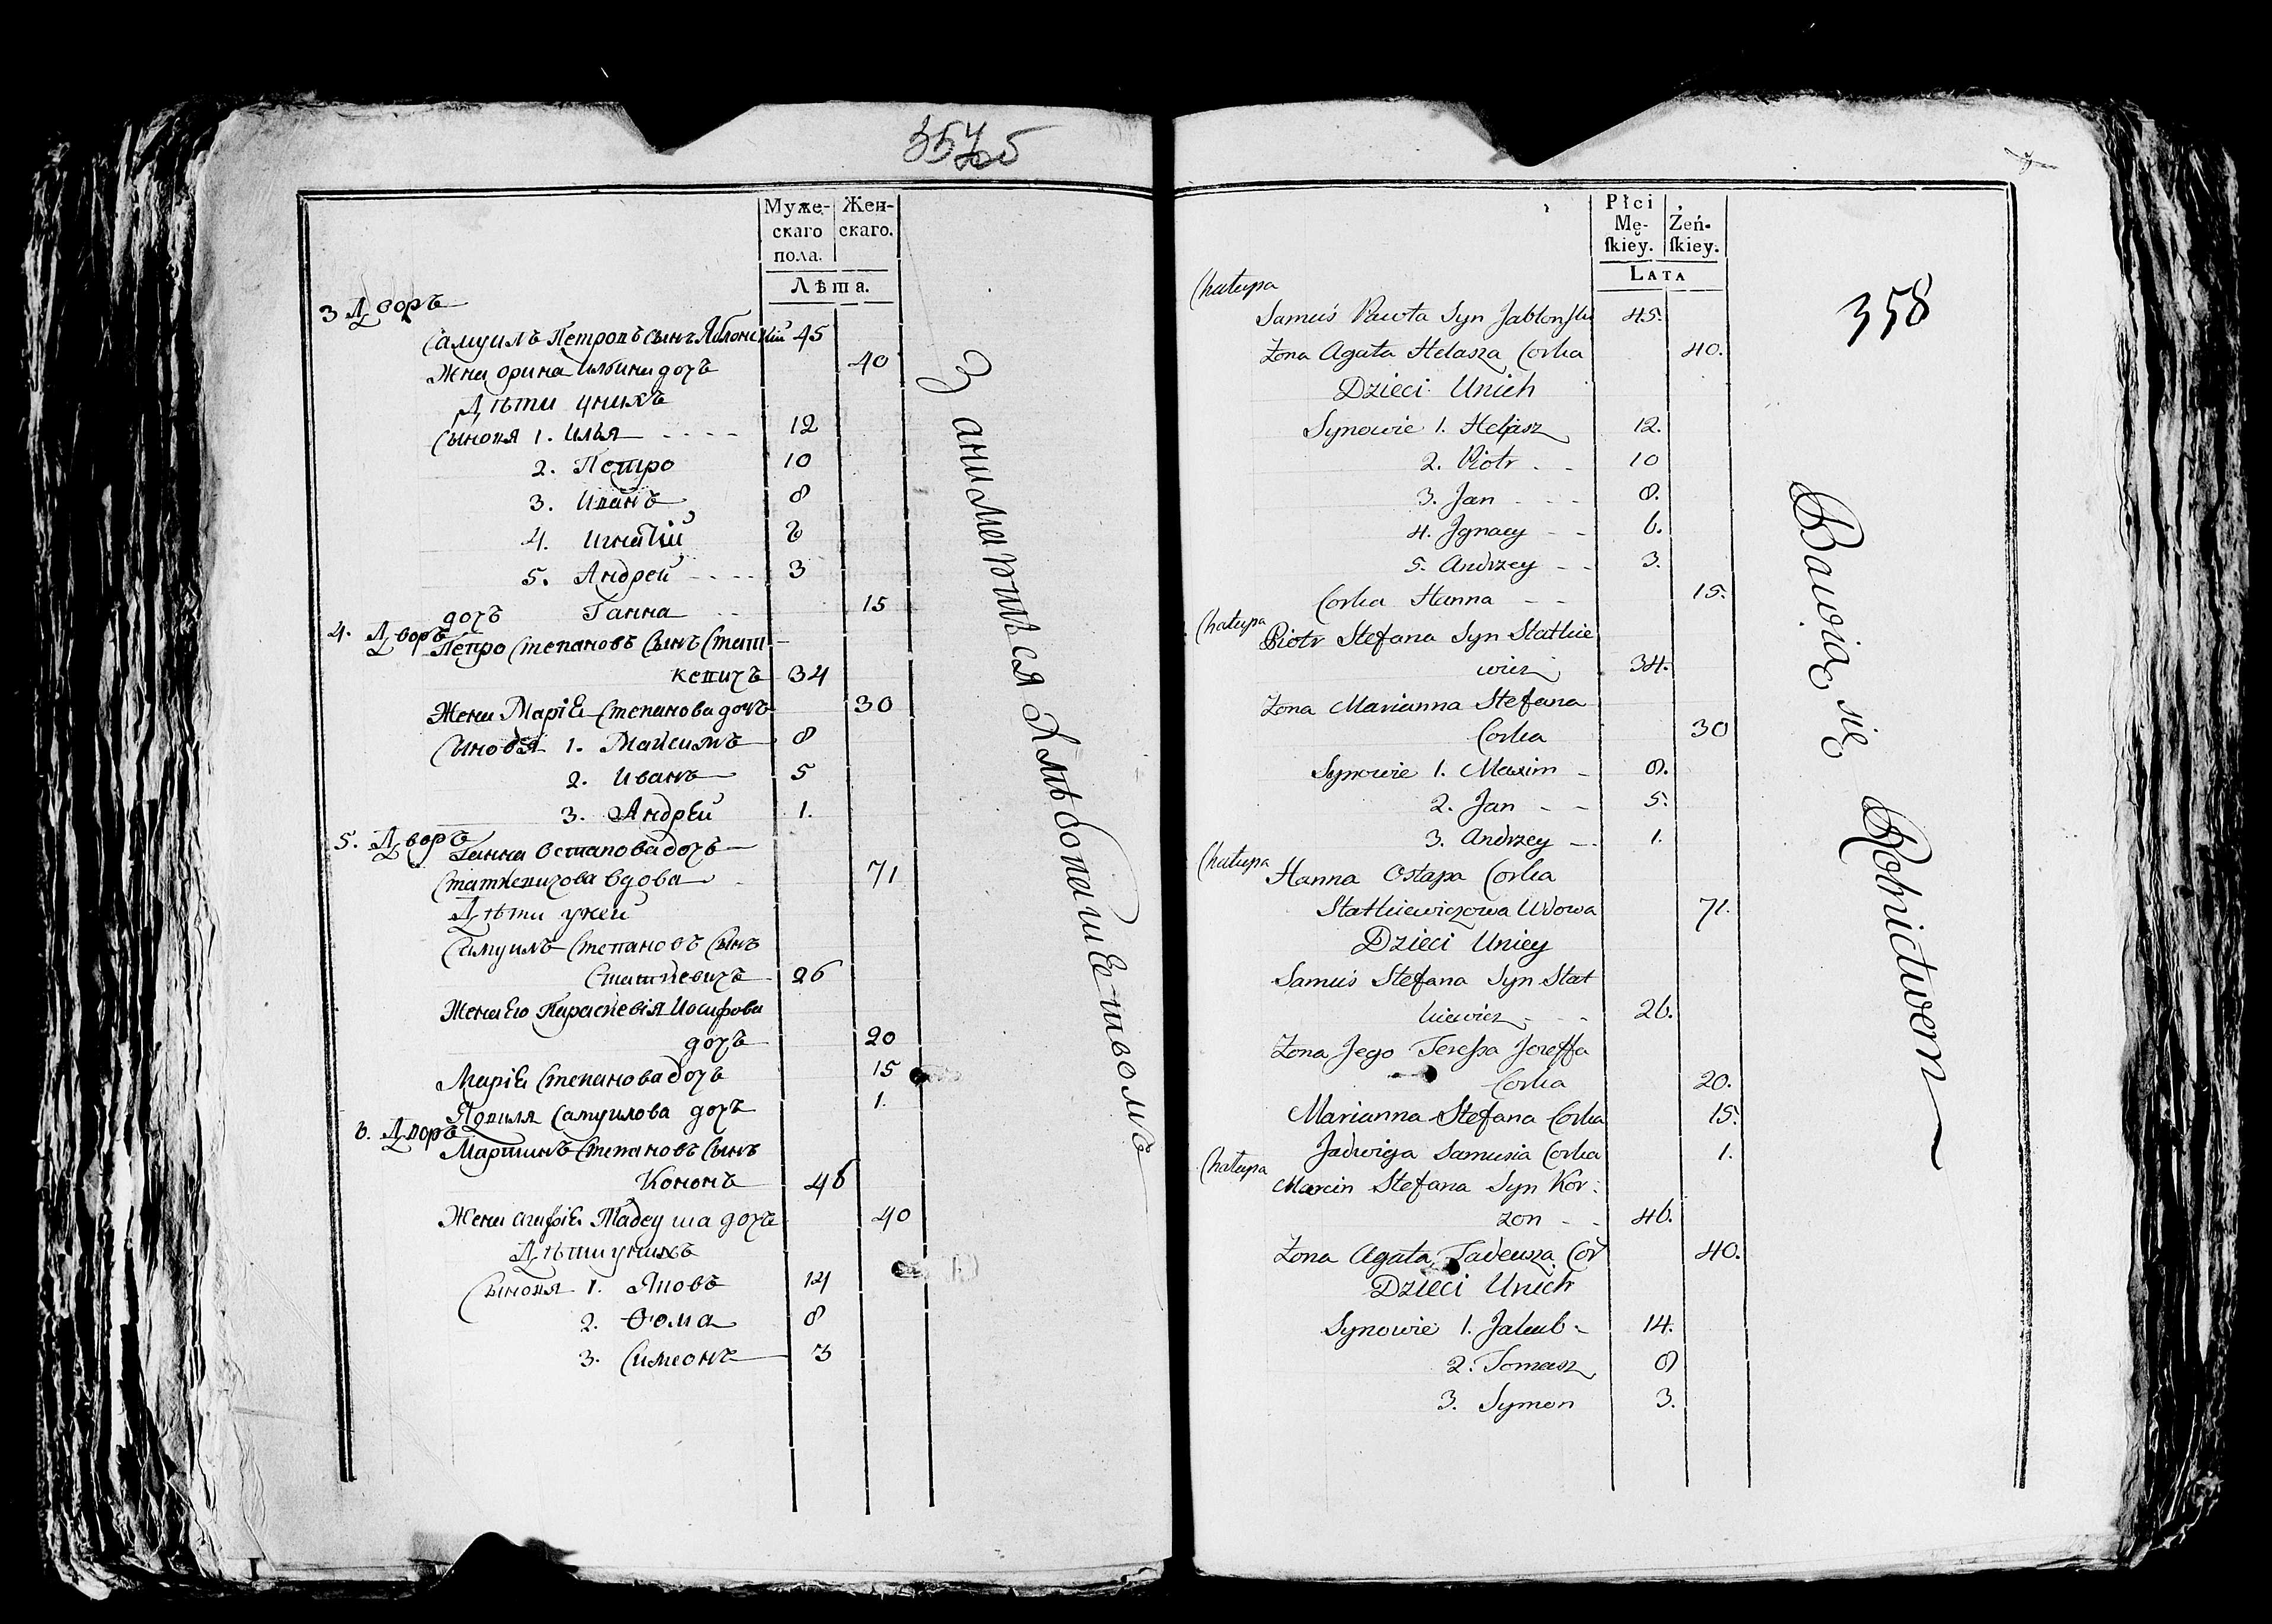 357об
Муже-
скаго
пола.
Жен-
скаго.
Лѣта.
3 Дворъ
Самуилъ Петровъ Сынъ Яблонскій 45
Жена орина Ильина дочь 40
Дѣти унихъ
Сыновя 1. Илья 12
2. Петро 10
3. Иванъ 8
4. Игнатій 6
5. Андрей 3
дочь Ганна 15
4. Дворъ
Петро Степановъ Сынъ Стат-
кевичъ 34
Жена Маріа Степанова дочь 30
Сыновя 1. Максимъ 8
2. Иванъ 5
3. Андрей 1.
5. Дворъ
Ганна Остапова дочь
Статкевичова вдова 71
Дѣти уней
Самуилъ Степановъ Сынъ
Статкевичъ 26
Жена Его Параскевія Иосифова
дочь 20
Маріа Степанова дочь 15
Ядвиля Самуилова дочь 1.
6. Дворъ
Мартинъ Степановъ Сынъ
46
Жена Тадеуша дочь 40
Дѣти унихъ
Сыновя 1. Яковъ 14
2. Ѳома 8
3. Симеонъ 3
Занимаютъся хлѣбопашествомъ
358
Płci
Mę-
ſkiey.
Żeń-
ſkiey.
Lata
Chałupa
Samuś Pawła Syn Jabłonski 45.
Zona Agata Helasza Corka 40.
Dzieci Unich
Synowie 1. Heljasz 12.
2. Piotr 10
3. Jan 8.
4. Jgnacy 6.
5. Andrzey 3.
Corka Hanna 15.
Chałupa
Piotr Stefana Syn Statkie
wicz 34.
Zona Marianna Stefana
Corka 30
Synowie 1. Maxim 8.
2. Jan 5.
3. Andrzey 1.
Chałupa
Hanna Ostapa Corka
Statkiewiczowa Wdowa 71.
Dzieci Uniey
Samuś Stefana Syn Stat
kiewicz 26.
Zona Jego Teressa Jozeffa
Corka 20.
Marianna Stefana Corka 15.
Jadwiga Samusia Corka 1.
Chałupa
Marcin Stefana Syn Kor:
zon 46.
Zona Agata Tadeusza Cor 40.
Dzieci Unich
Synowie 1. Jakub 14.
2. Tomasz 8
3. Symon 3.
Bawią się Rolnictwem